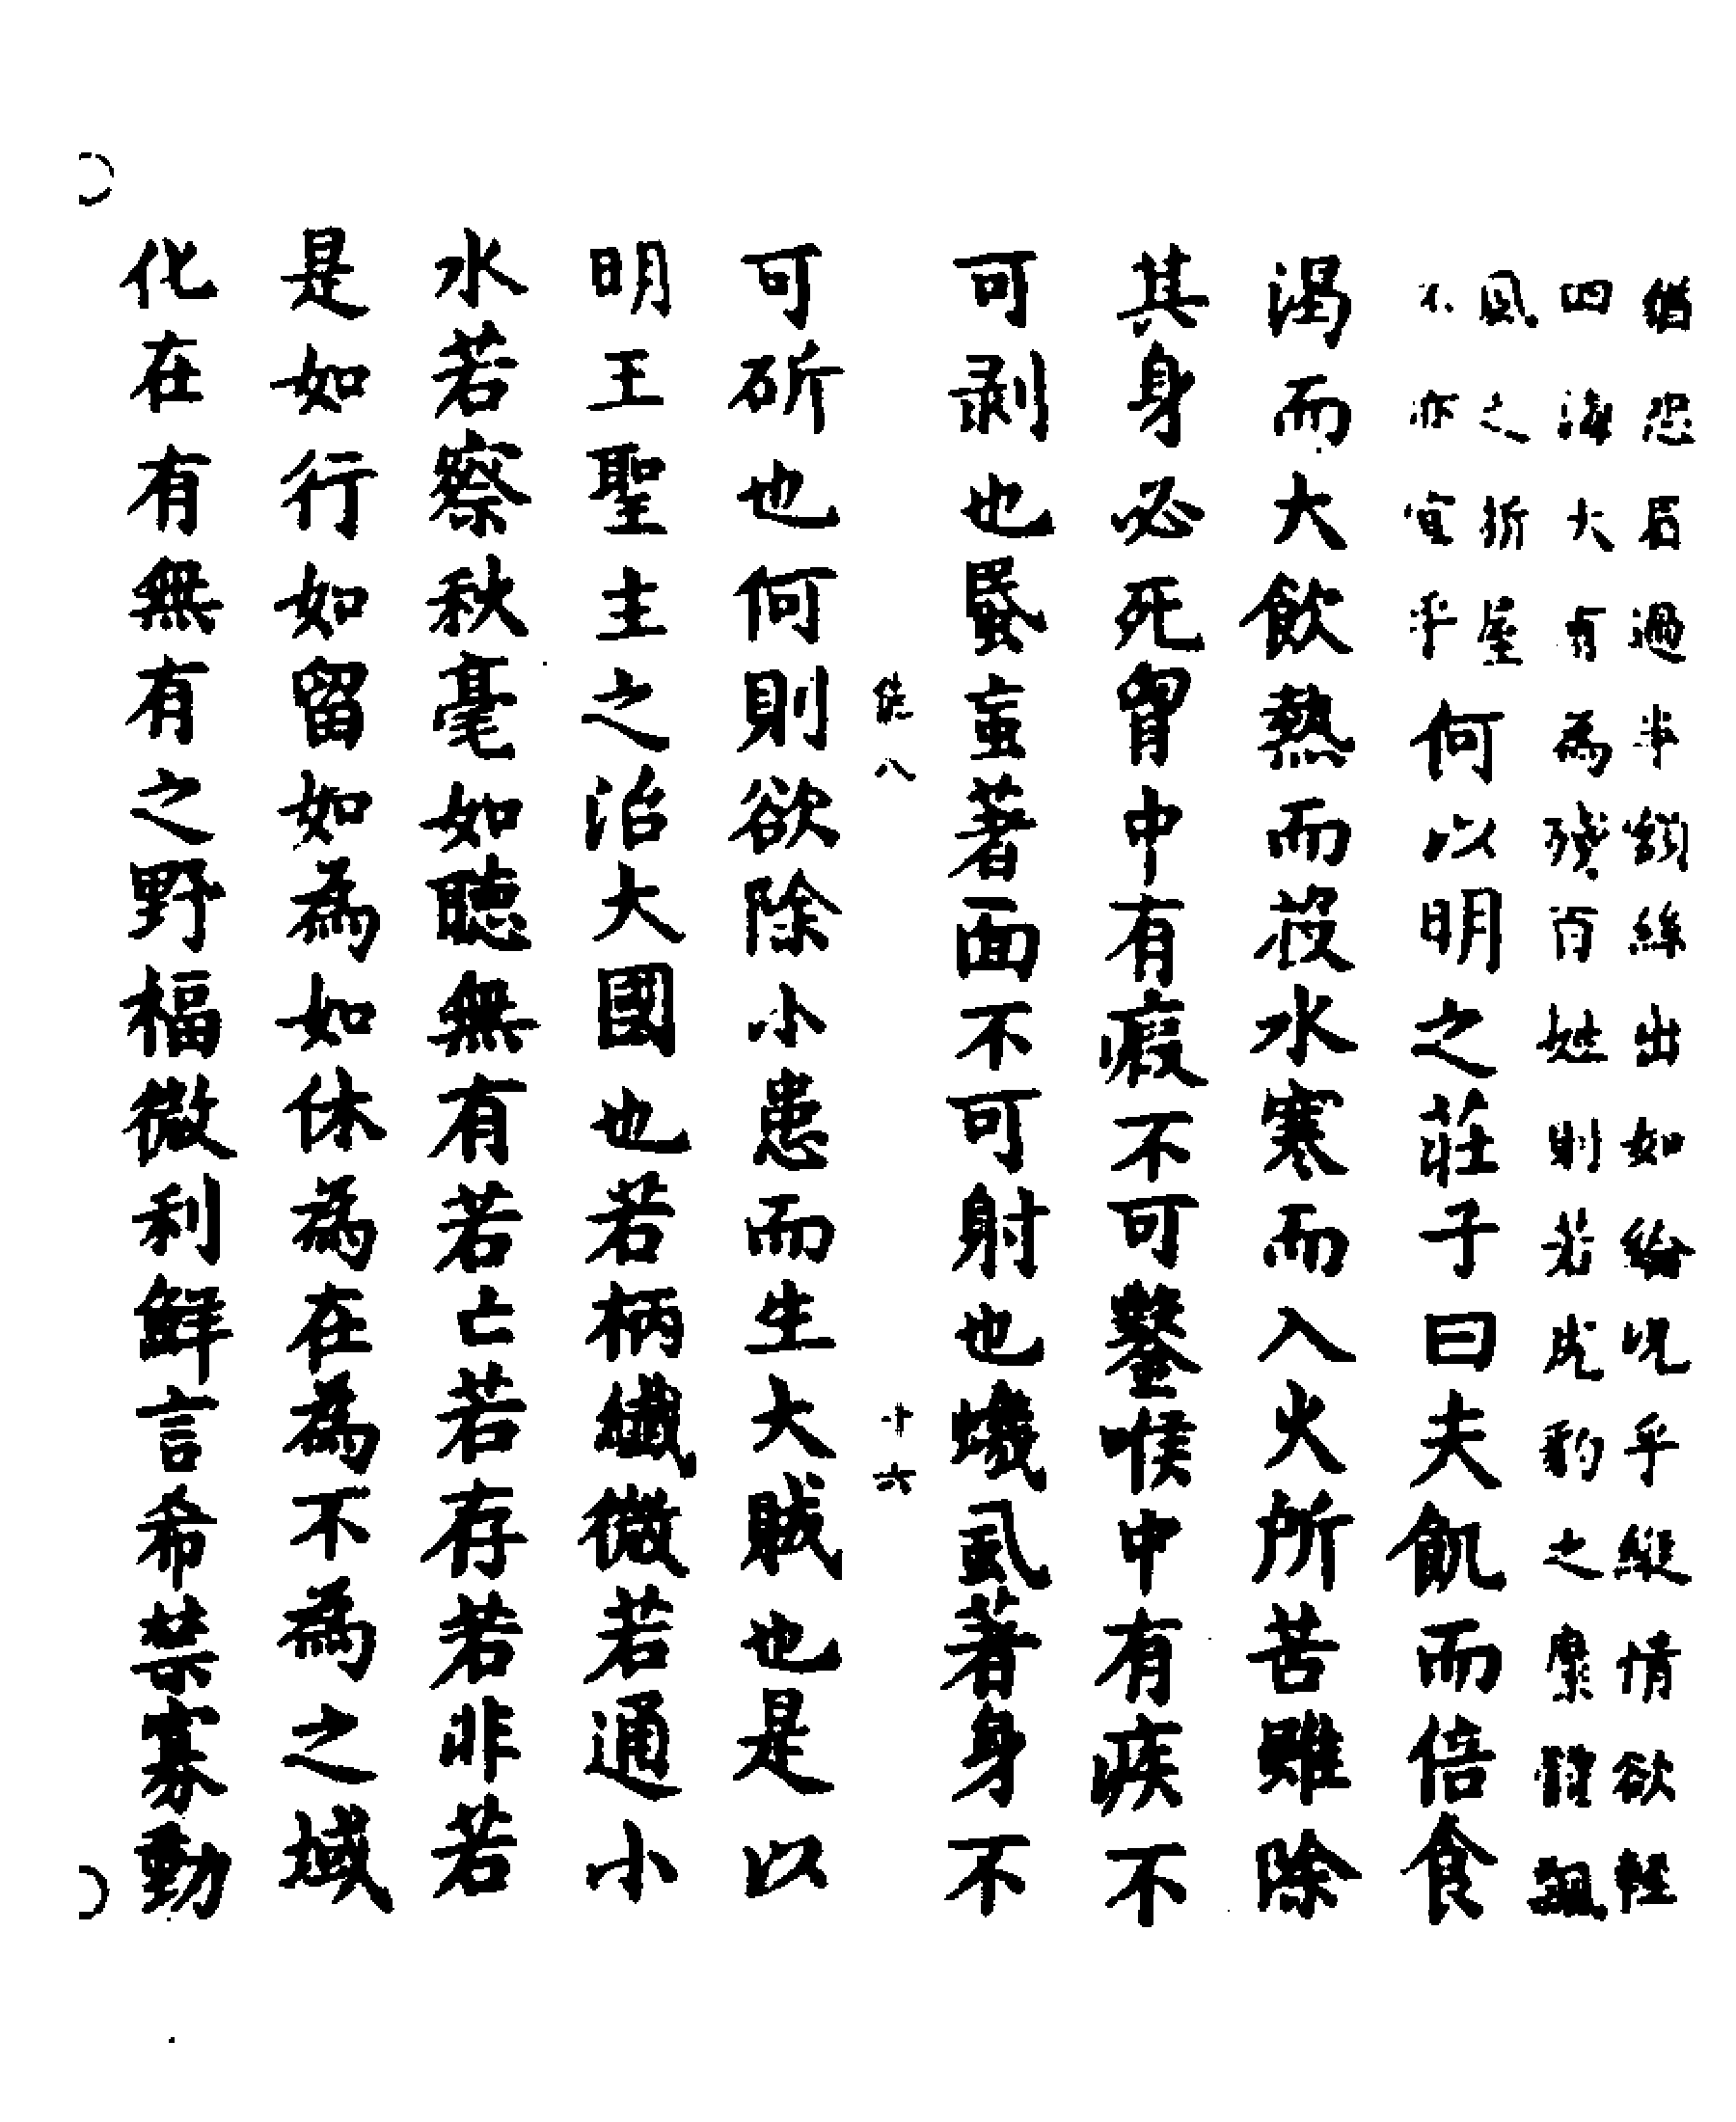 猶恐居過半額絲出如綸況乎縱情欲輕
四海大有為殘百姓則若虎豹之麋體飄
風之折屋
不亦宜乎何以明之莊子曰夫飢而倍食
渴而大飲熱而投水寒而入火所苦雖除
其身必死胷中有瘕不可鑿喉中有疾不
可剥也蚤䖟著面不可射也蟣虱著身不
八
十六
可斫也何則欲除小患而生大賊也是以
明王聖主之治大國也若柄纖微若通小
水若察秋毫如聽無有若亡若存若非若
是如行如留如為如休為在為不為之域
化在有無有之野福微利鮮言希禁寡動